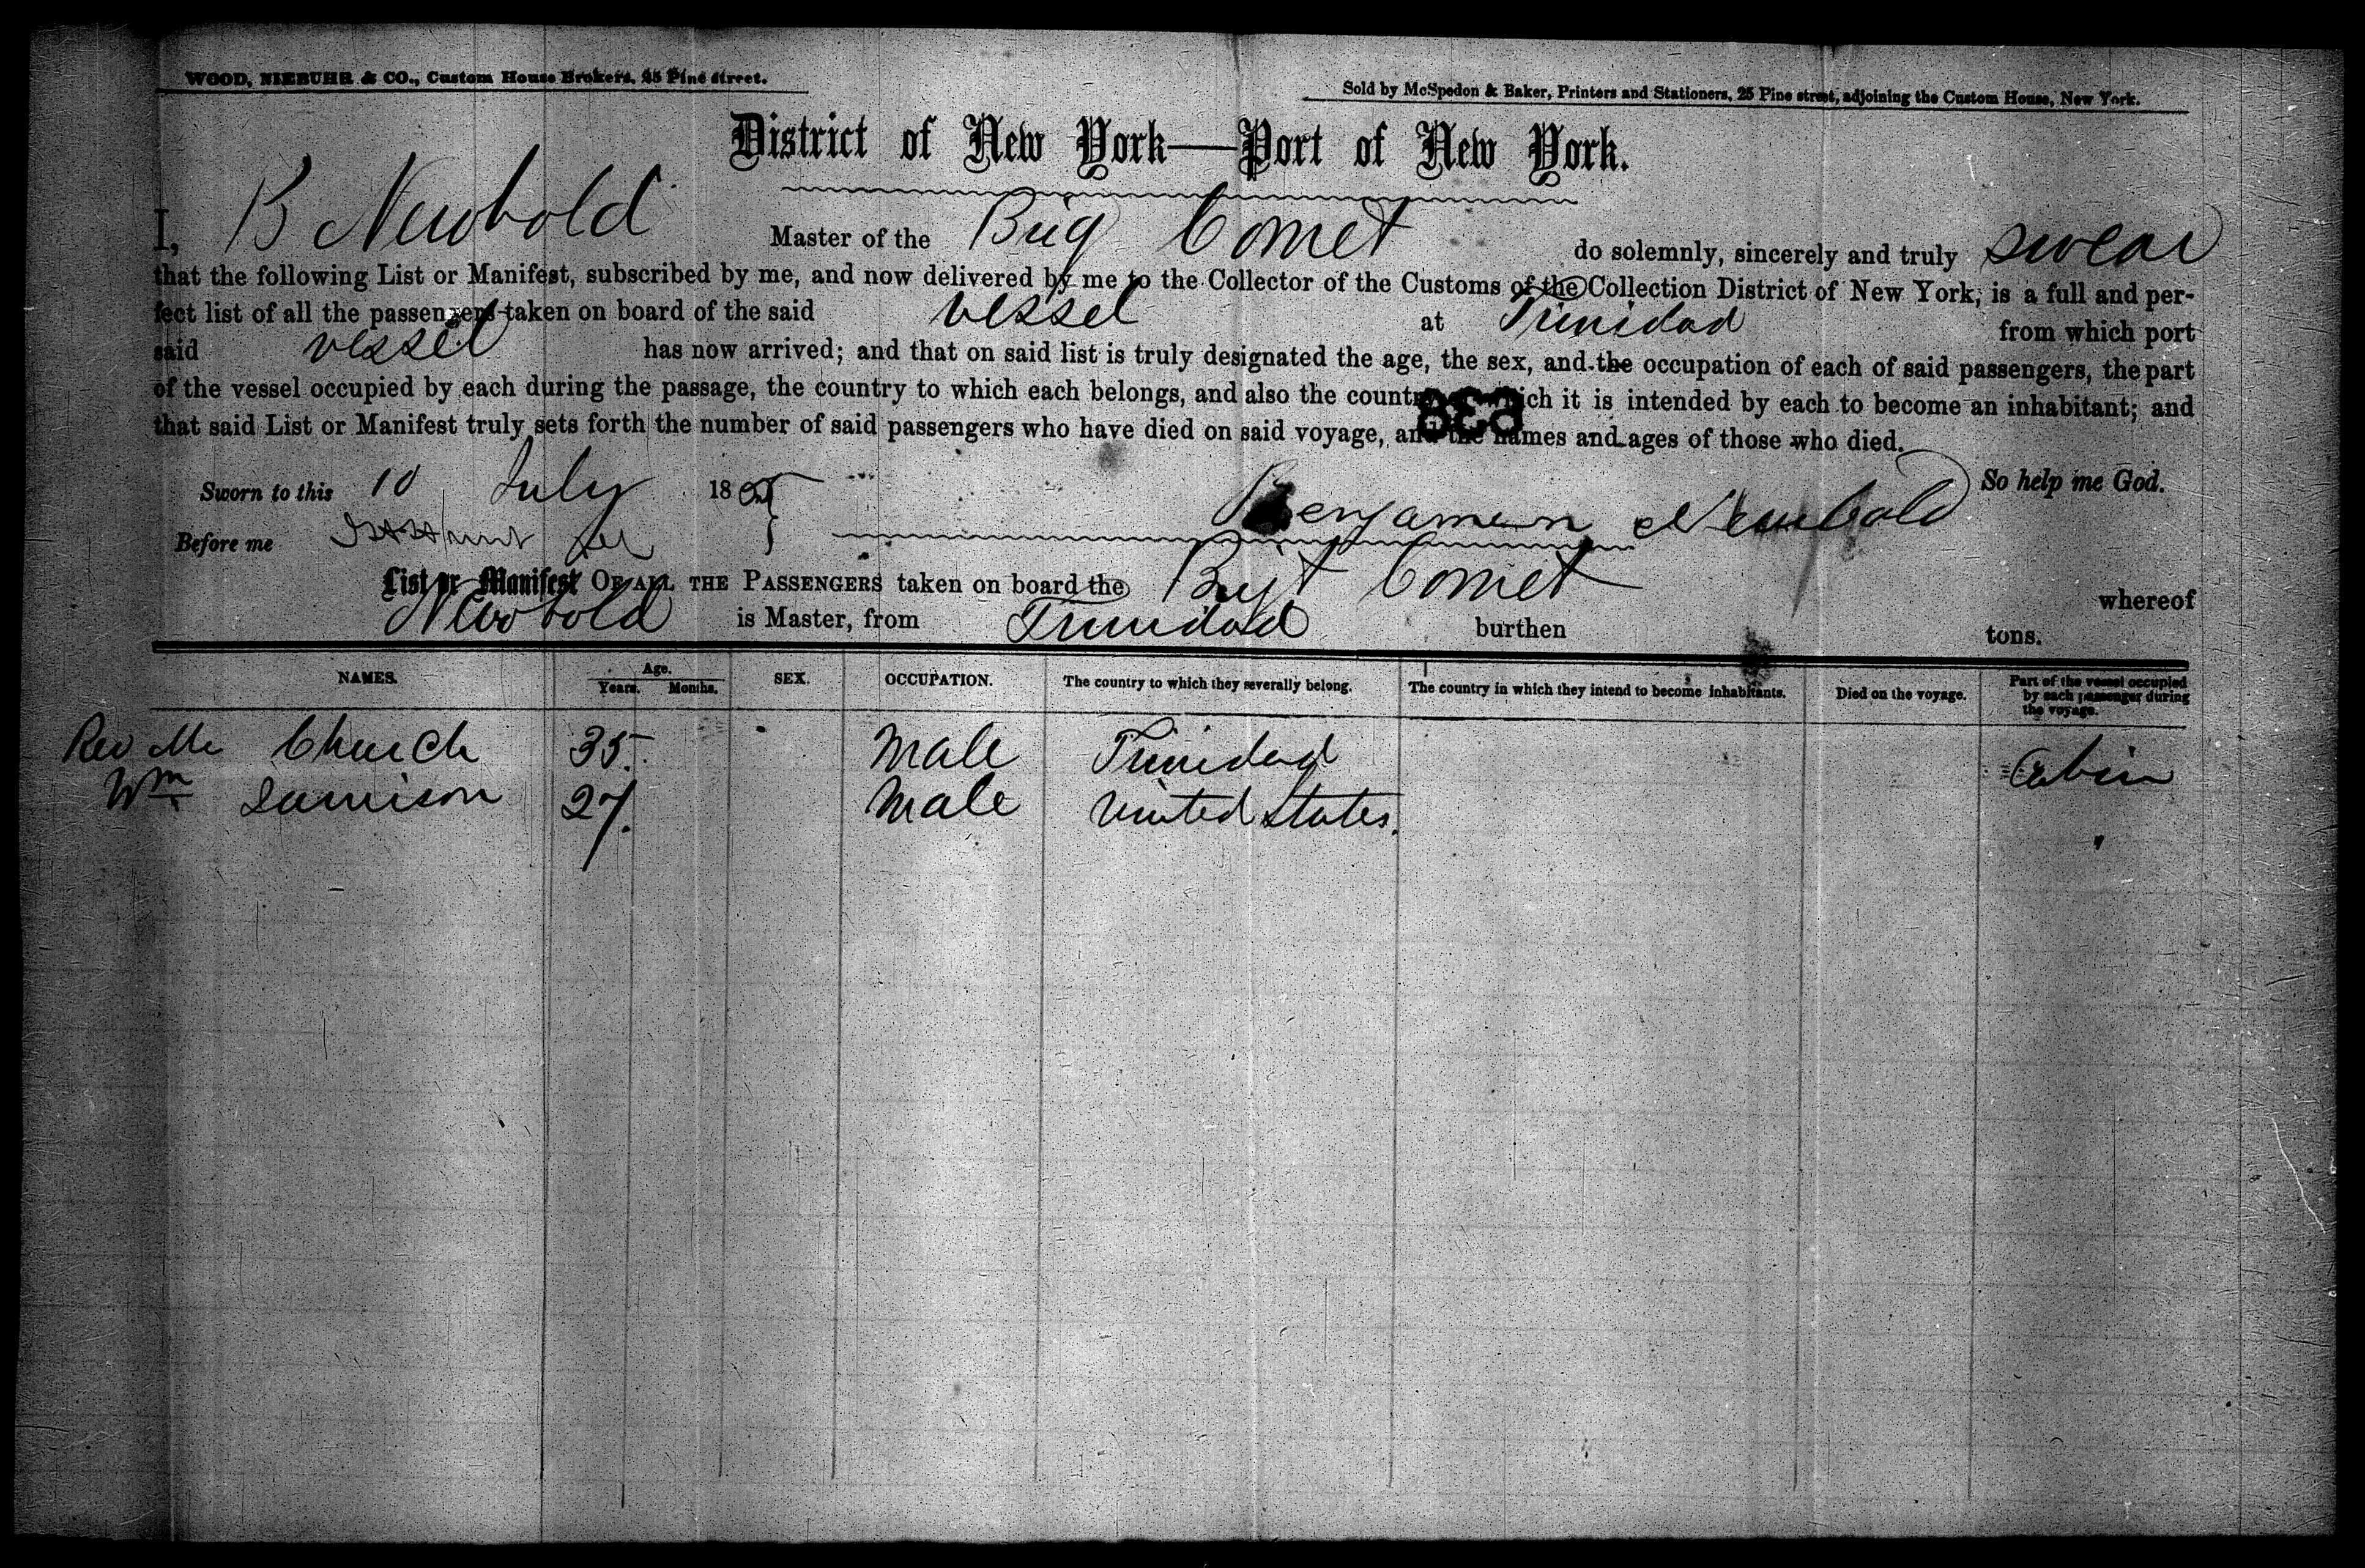 WOOD, NIEBUHR & CO., Custom House Brokers, 25 Pine street.
Sold by McSpedon & Baker, Printers and Stationers, 25 Pine street, adjoining the Custom House, New York.
District of New York—Port of New York.
I, B Newbold Master of the Brig Comet do solemnly, sincerely and truly swear
that the following List or Manifest, subscribed by me, and now delivered by me to the Collector of the Customs of the Collection District of New York, is a full and per-
fect list of all the passengers taken on board of the said vessel at Trinidad from which port
said vessel has now arrived; and that on said list is truly designated the age, the sex, and the occupation of each of said passengers, the part
of the vessel occupied by each during the passage, the country to which each belongs, and also the country of which it is intended by each to become an inhabitant; and
that said List or Manifest truly sets forth the number of said passengers who have died on said voyage, and the names and ages of those who died.
636
So help me God.
Sworn to this 10 July 18
Benjamin Newbold
Before me
List or Manifest OF ALL THE PASSENGERS taken on board the Brig Comet whereof
Newbold is Master, from Trinidad burthen tons.
NAMES. Age. Years. Months. SEX. OCCUPATION. The country to which they severally belong. The country in which they intend to become inhabitants. Died on the voyage. Part of the vessel occupied by each passenger during the voyage.
Rev Mr Church 35 Male Trinidad Cabin
Wm Jamison 27. Male United States. "